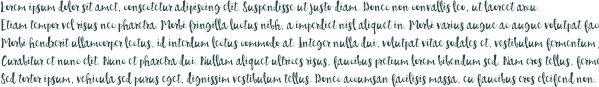 Lorem ipsum dolor sit amet, consectetur adipiscing elit. Suspendisse ut justo diam. Donec non convallis leo, ut laoreet arcu.
Etiam tempor vel risus nec pharetra. Morbi fringilla luctus nibh, a imperdiet nisl aliquet in. Morbi varius augue ac augue volutpat fac
Morbi hendrerit ullamcorper lectus, id interdum lectus commodo at. Integer nulla dui, volutpat vitae sodales et, vestibulum fermentum
Curabitur et nunc elit. Nunc et pharetra dui. Nullam aliquet ultrices risus, faucibus pretium lorem bibendum sed. Nam eros tellus, ferme
Sed tortor ipsum, vehicula sed purus eget, dignissim vestibulum tellus. Donec accumsan facilisis massa, eu faucibus eros eleifend non.